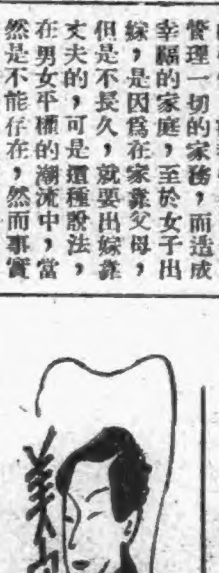 管理一切的家務，而造成
幸福的家庭，至於女子出
嫁，是因爲在家靠父母，
但是不長久，就要出嫁靠
丈夫的，可是這種說法，
在男女平權的潮流中，當
然是不能存在，然而事實
美